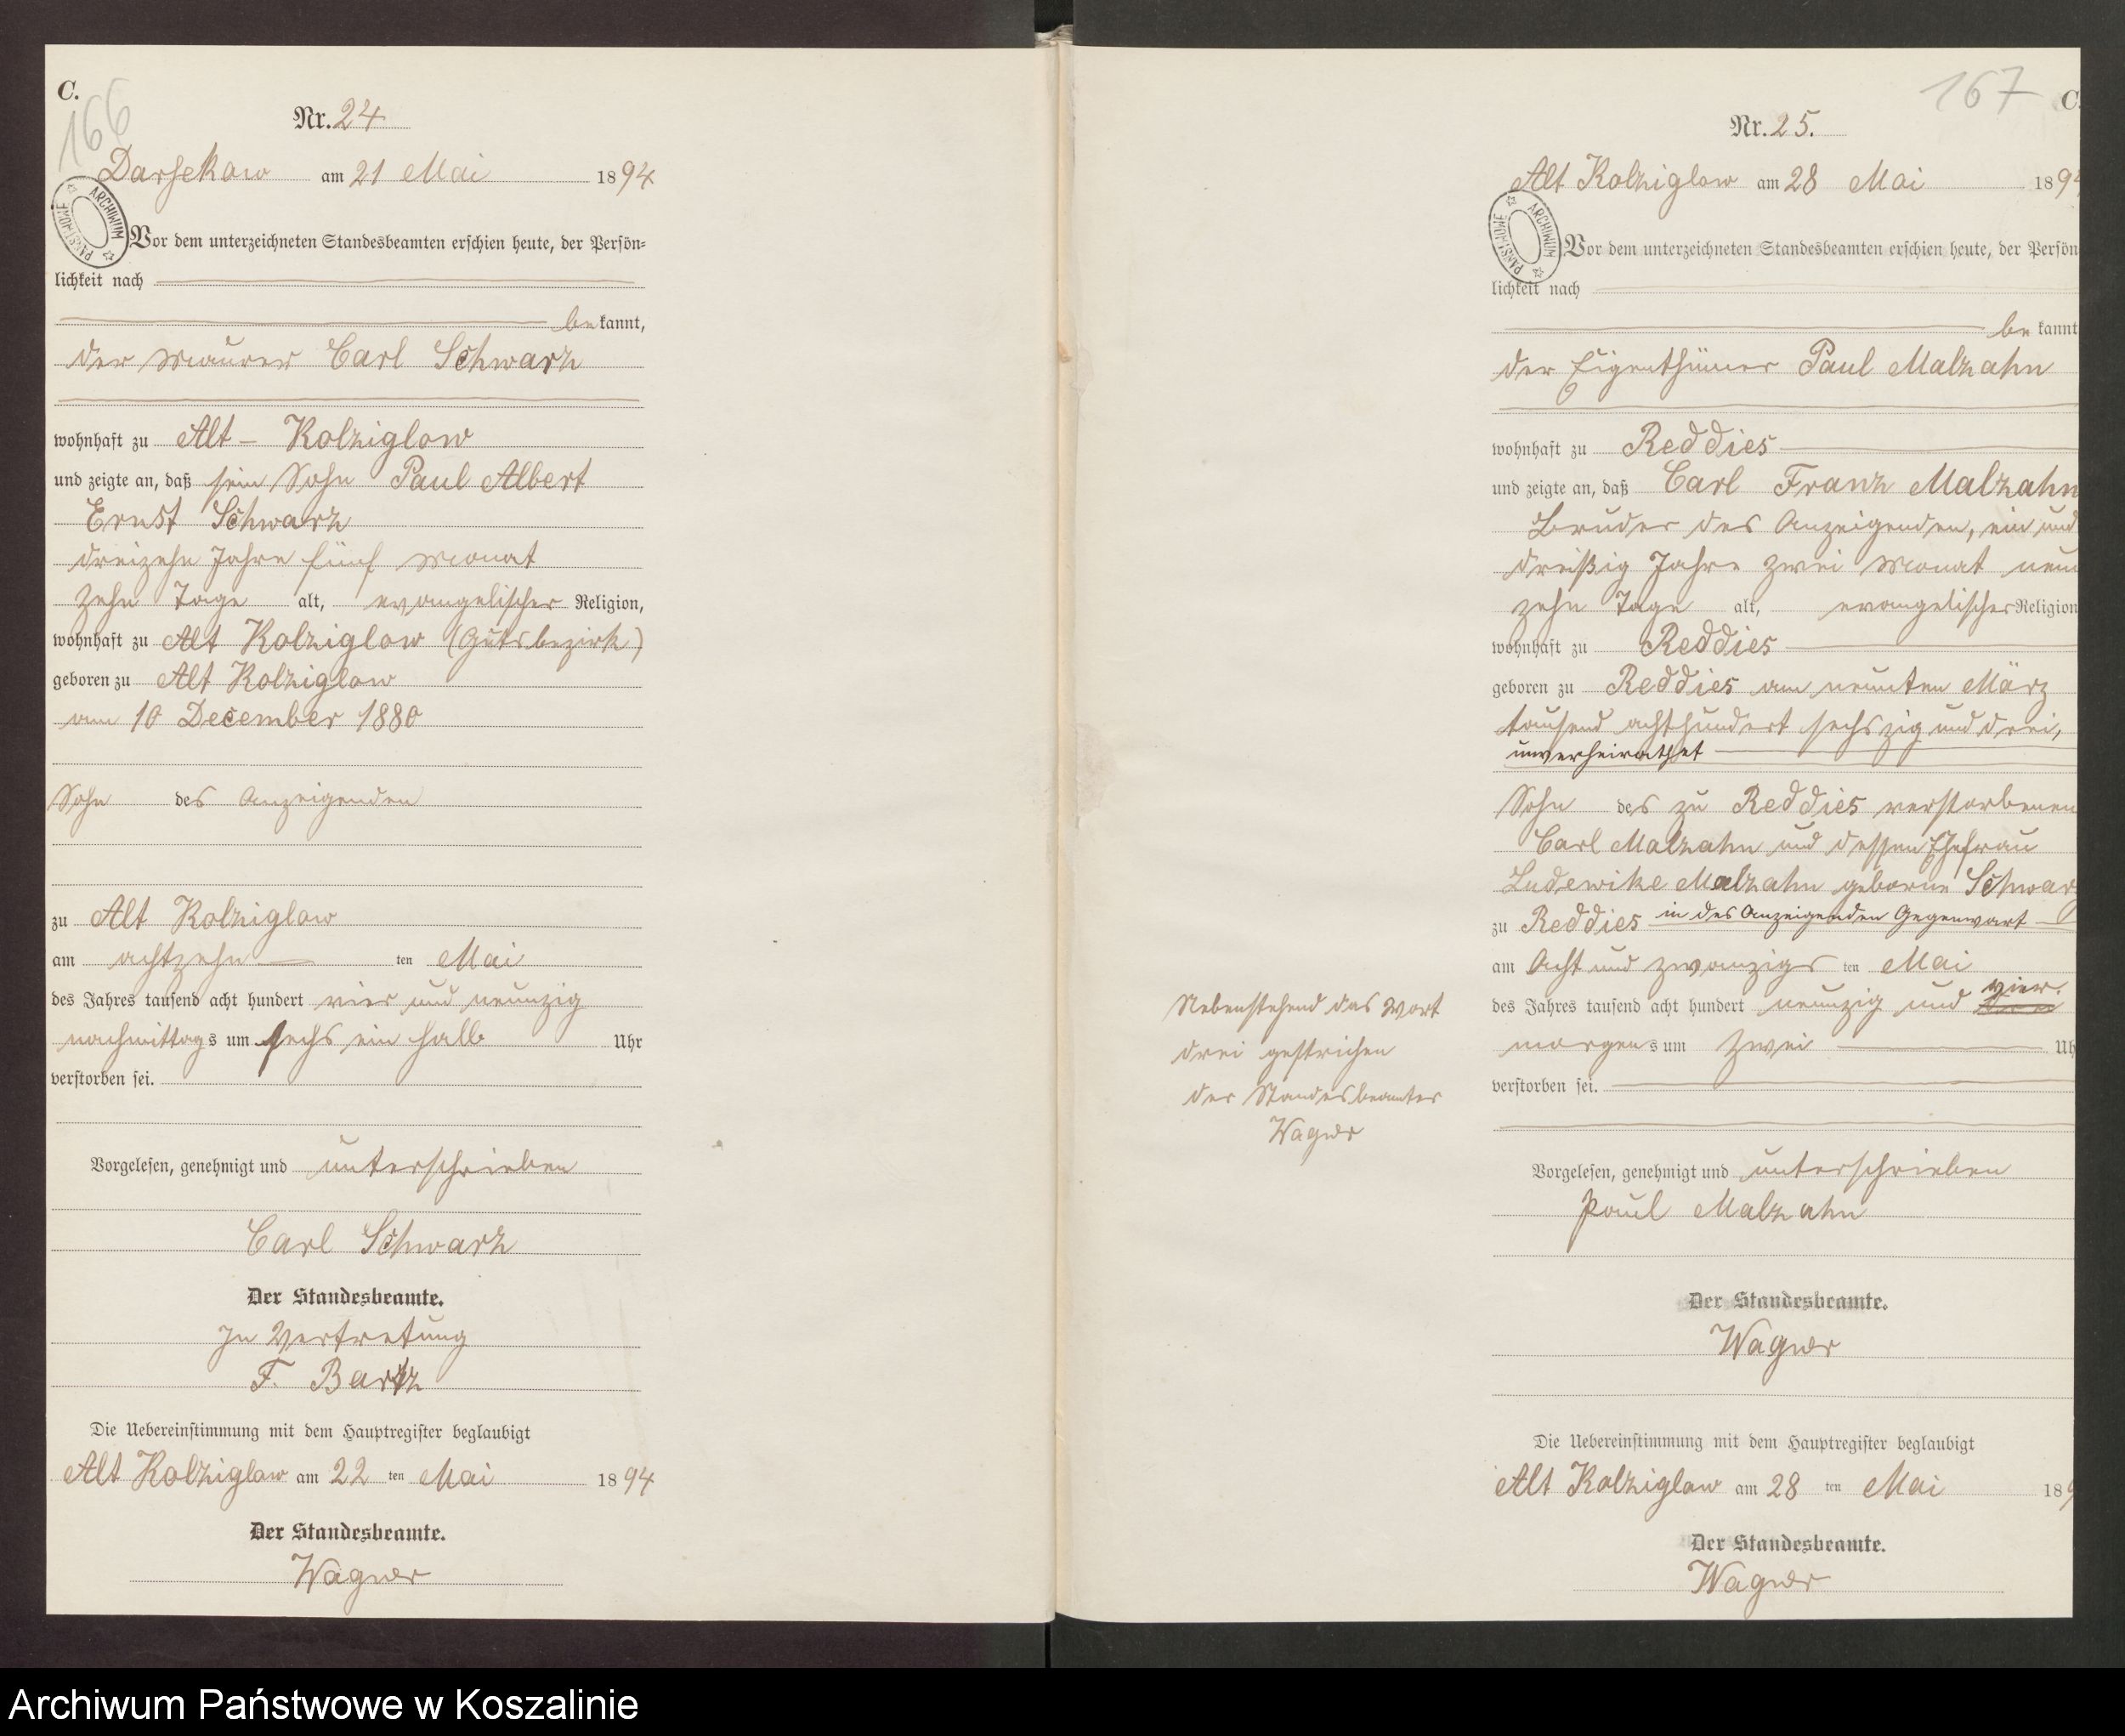 C.
166
Nr. 24
Darsekow am 21 Mai 1894
ARCHIWUM PAŃSTWOWE
Vor dem unterzeichneten Standesbeamten erschien heute, der Persön-
lichkeit nach
be kannt,
der Maurer Carl Schwarz
wohnhaft zu Alt - Kolziglow
und zeigte an, daß sein Sohn Paul Albert
Ernst Schwarz
dreizehn Jahre fünf Monat
zehn Tage alt, evangelischer Religion,
wohnhaft zu Alt Kolziglow (Gutsbezirk)
geboren zu Alt Kolziglow
am 10 December 1880
Sohn des Anzeigenden
zu Alt Kolziglow
am achtzehn ten Mai
des Jahres tausend acht hundert vier und neunzig
nachmittags um sechs ein halb Uhr
verstorben sei.
Vorgelesen, genehmigt und unterschrieben
Carl Schwarz
Der Standesbeamte.
In Vertretung
F. Bartz
Die Uebereinstimmung mit dem Hauptregister beglaubigt
Alt Kolziglow am 22 ten Mai 1894
Der Standesbeamte.
Wagner
167
C.
Nr. 25.
Alt Kolziglow am 28 Mai 189
ARCHIWUM PAŃSTWOWE
Vor dem unterzeichneten Standesbeamten erschien heute, der Persön
lichkeit nach
be kannt
der Eigenthümer Paul Malzahn
wohnhaft zu Reddies
und zeigte an, daß Carl Franz Malzahn
Bruder des Anzeigenden, ein und
dreißig Jahre zwei Monat neun
zehn Tage alt, evangelischer Religion
wohnhaft zu Reddies
geboren zu Reddies am neunten März
tausend achthundert sechszig und drei,
unverheirathet
Sohn des zu Reddies verstorbenen
Carl Malzahn und dessen Ehefrau
Ludewike Malzahn geborne Schwarz
zu Reddies in des Anzeigenden Gegenwart
am Acht und zwanzigs ten Mai
des Jahres tausend acht hundert neunzig und drei vier.
morgens um zwei Uh
verstorben sei.
Nebenstehend das Wort
drei gestrichen
der Standesbeamter
Wagner
Vorgelesen, genehmigt und unterschrieben
Paul Malzahn
Der Standesbeamte.
Wagner
Die Uebereinstimmung mit dem Hauptregister beglaubigt
Alt Kolziglow am 28 ten Mai 189
Der Standesbeamte.
Wagner
Archiwum Państwowe w Koszalinie